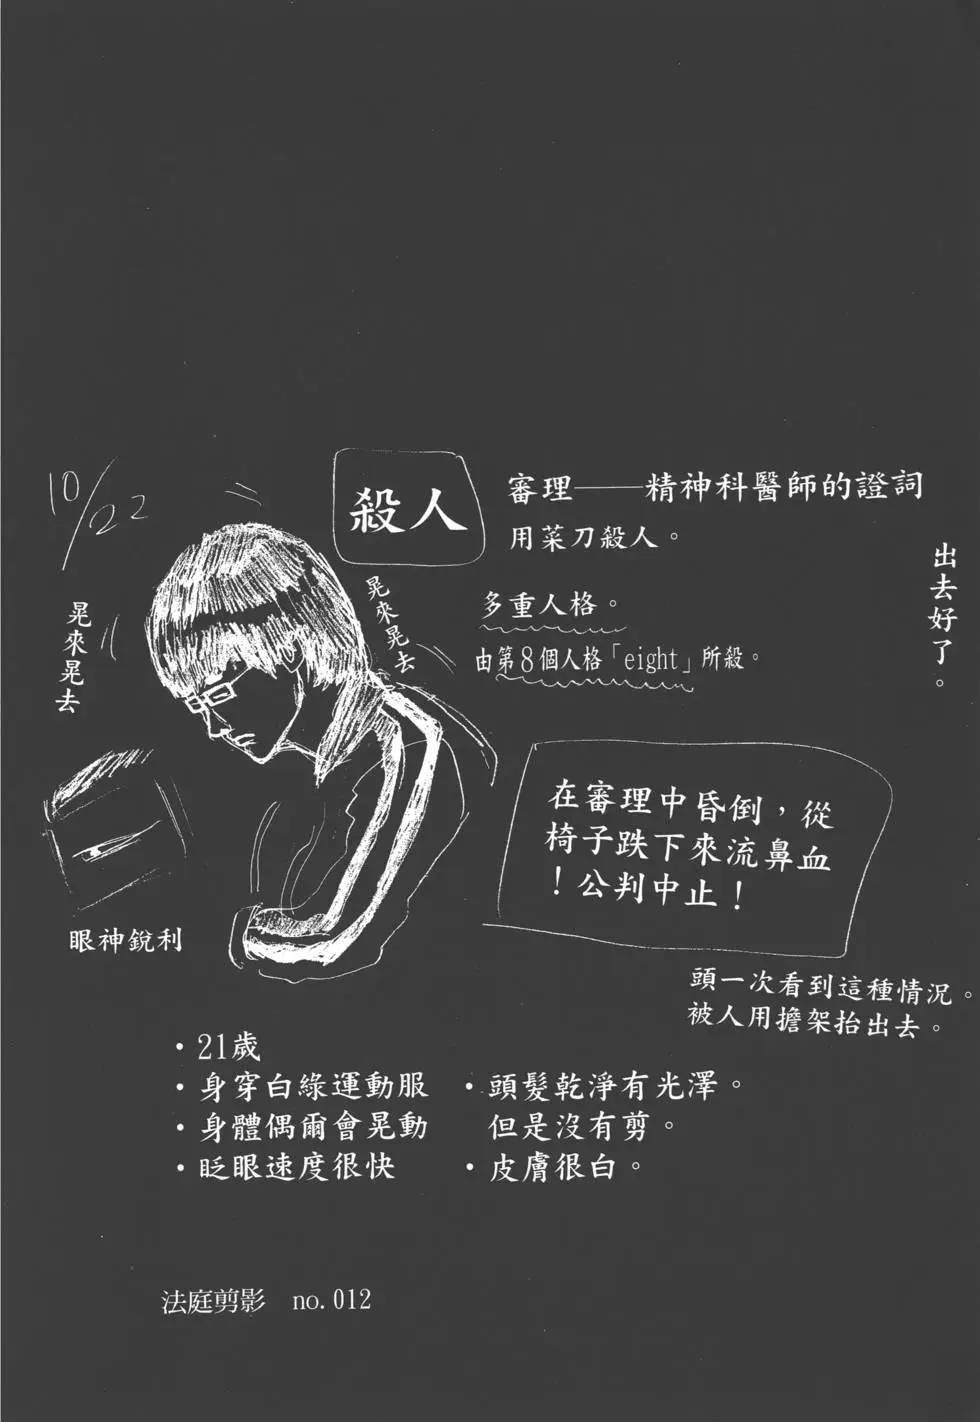 10/22
殺人
審理——精神科醫師的證詞
用菜刀殺人。
多重人格。
由第8個人格「eight」所殺。
出去好了。
晃來晃去
晃來晃去
眼神銳利
在審理中昏倒，從
椅子跌下來流鼻血
！公判中止！
頭一次看到這種情況。
被人用擔架抬出去。
・21歲
・身穿白綠運動服
・身體偶爾會晃動
・眨眼速度很快
・頭髮乾淨有光澤。
但是沒有剪。
・皮膚很白。
法庭剪影 no. 012